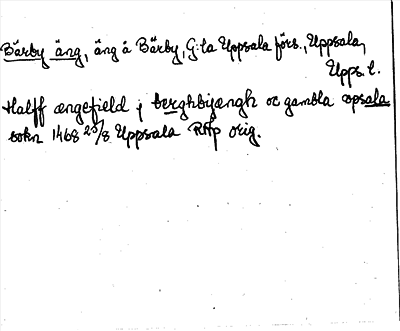 Bärby äng, äng å Bärby, G:la Uppsala förs., Uppsala,
Upps. l.
Halff ængefield j berghbyængh oc gambla opsala
sokn 1468 23/8 Uppsala RAp orig.